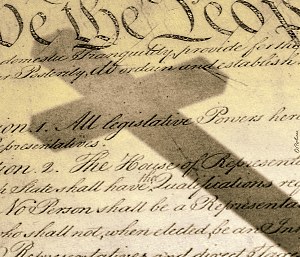 We the People
domestic Tranquility, provide for the
Posterity, do ordain and establish
1. All legislative Powers here
Representatives.
2. The House of Represent
State shall have the Qualifications re
No Person shall be a Representa
who shall not, when elected, be an In
Representatives and direct Taxes